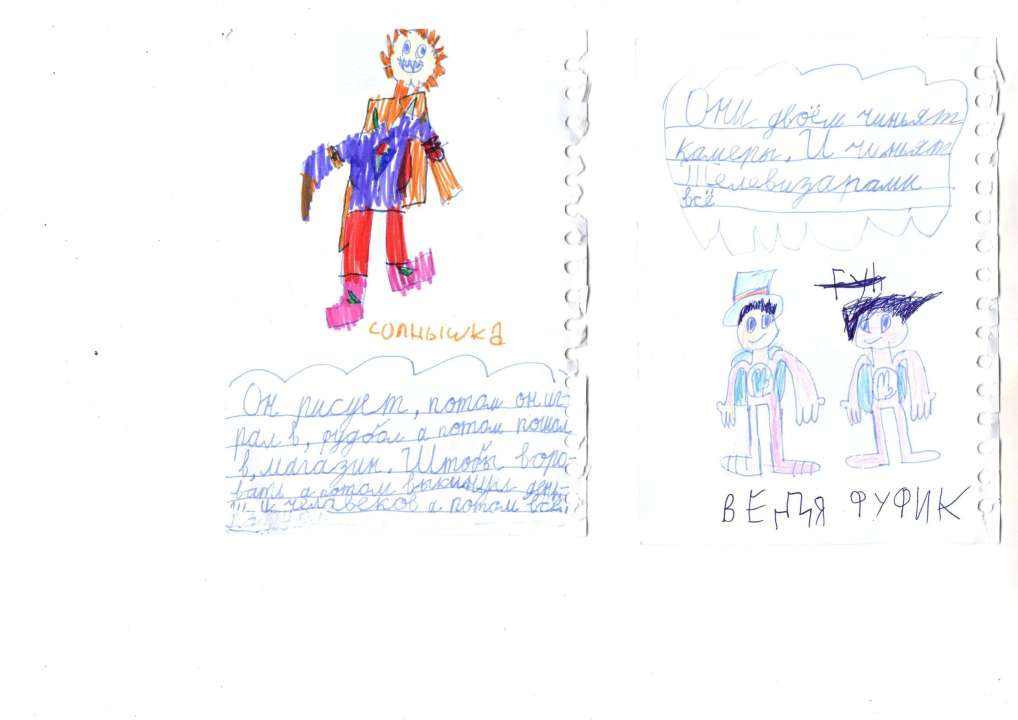 СОЛНЫШКА
Он рисует, потом он иг-
рал в, фудбол а потом пошол
в, магазин. Штобы вора-
вать а потом выкинул день-
человеков а потом всё
Они двоём чиньят
камеры. И чиньят
Телевизарами
всё
ГУН
ВЕНЦЯ ФУФИК